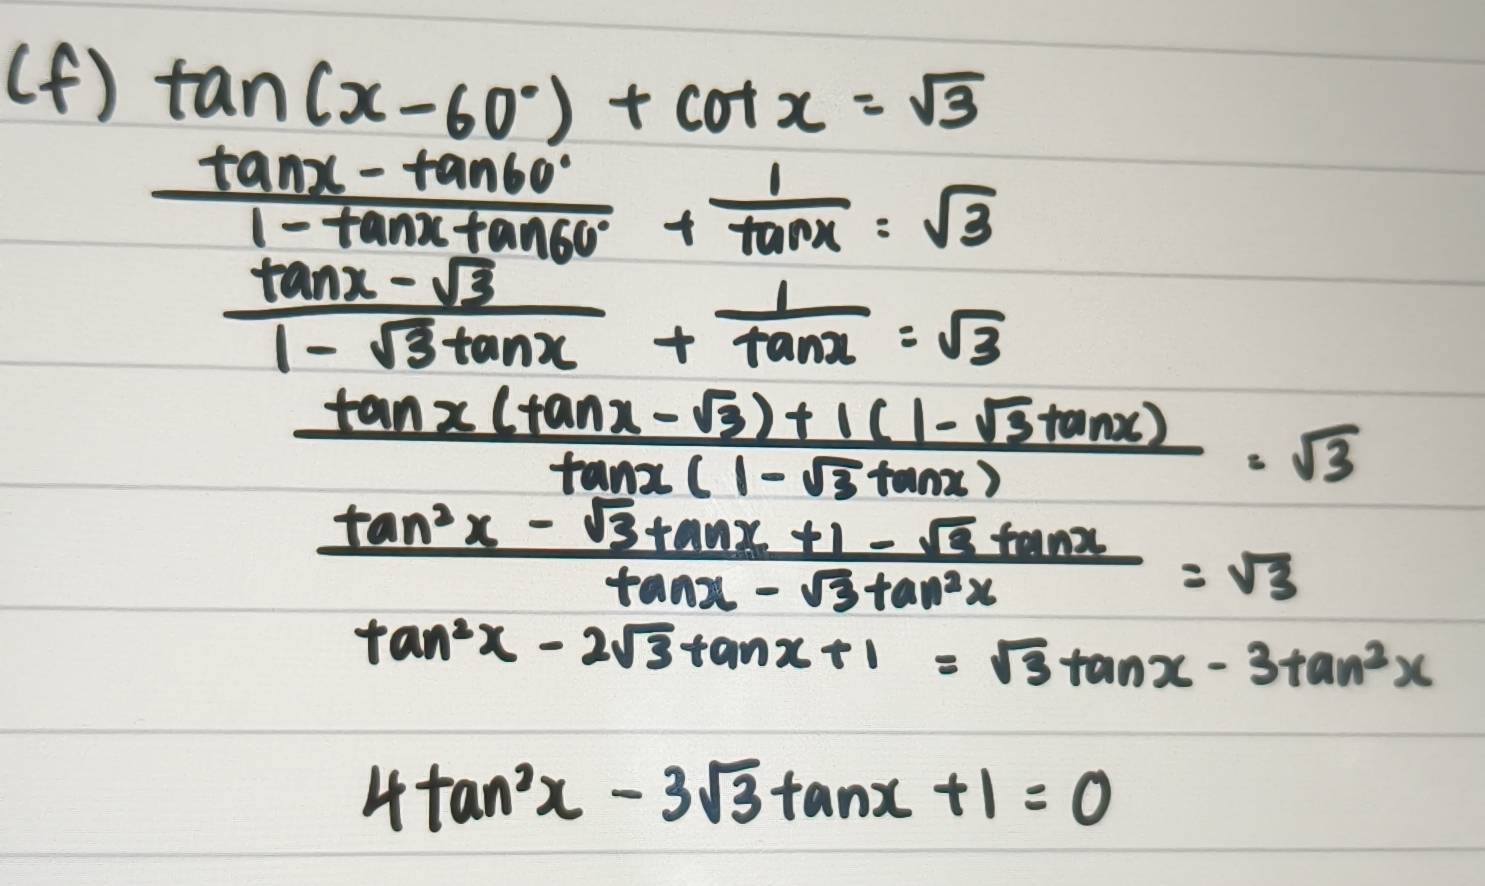 (f) tan(x - 60°) + cot x = √3
(tanx - tan60°)/(1 - tanx tan60°) + 1/tanx = √3
(tanx - √3)/(1 - √3 tanx) + 1/tanx = √3
(tanx(tanx - √3) + 1(1 - √3 tanx))/(tanx(1 - √3 tanx)) = √3
(tan²x - √3 tanx + 1 - √3 tanx)/(tanx - √3 tan²x) = √3
tan²x - 2√3 tanx + 1 = √3 tanx - 3tan²x
4tan²x - 3√3 tanx + 1 = 0